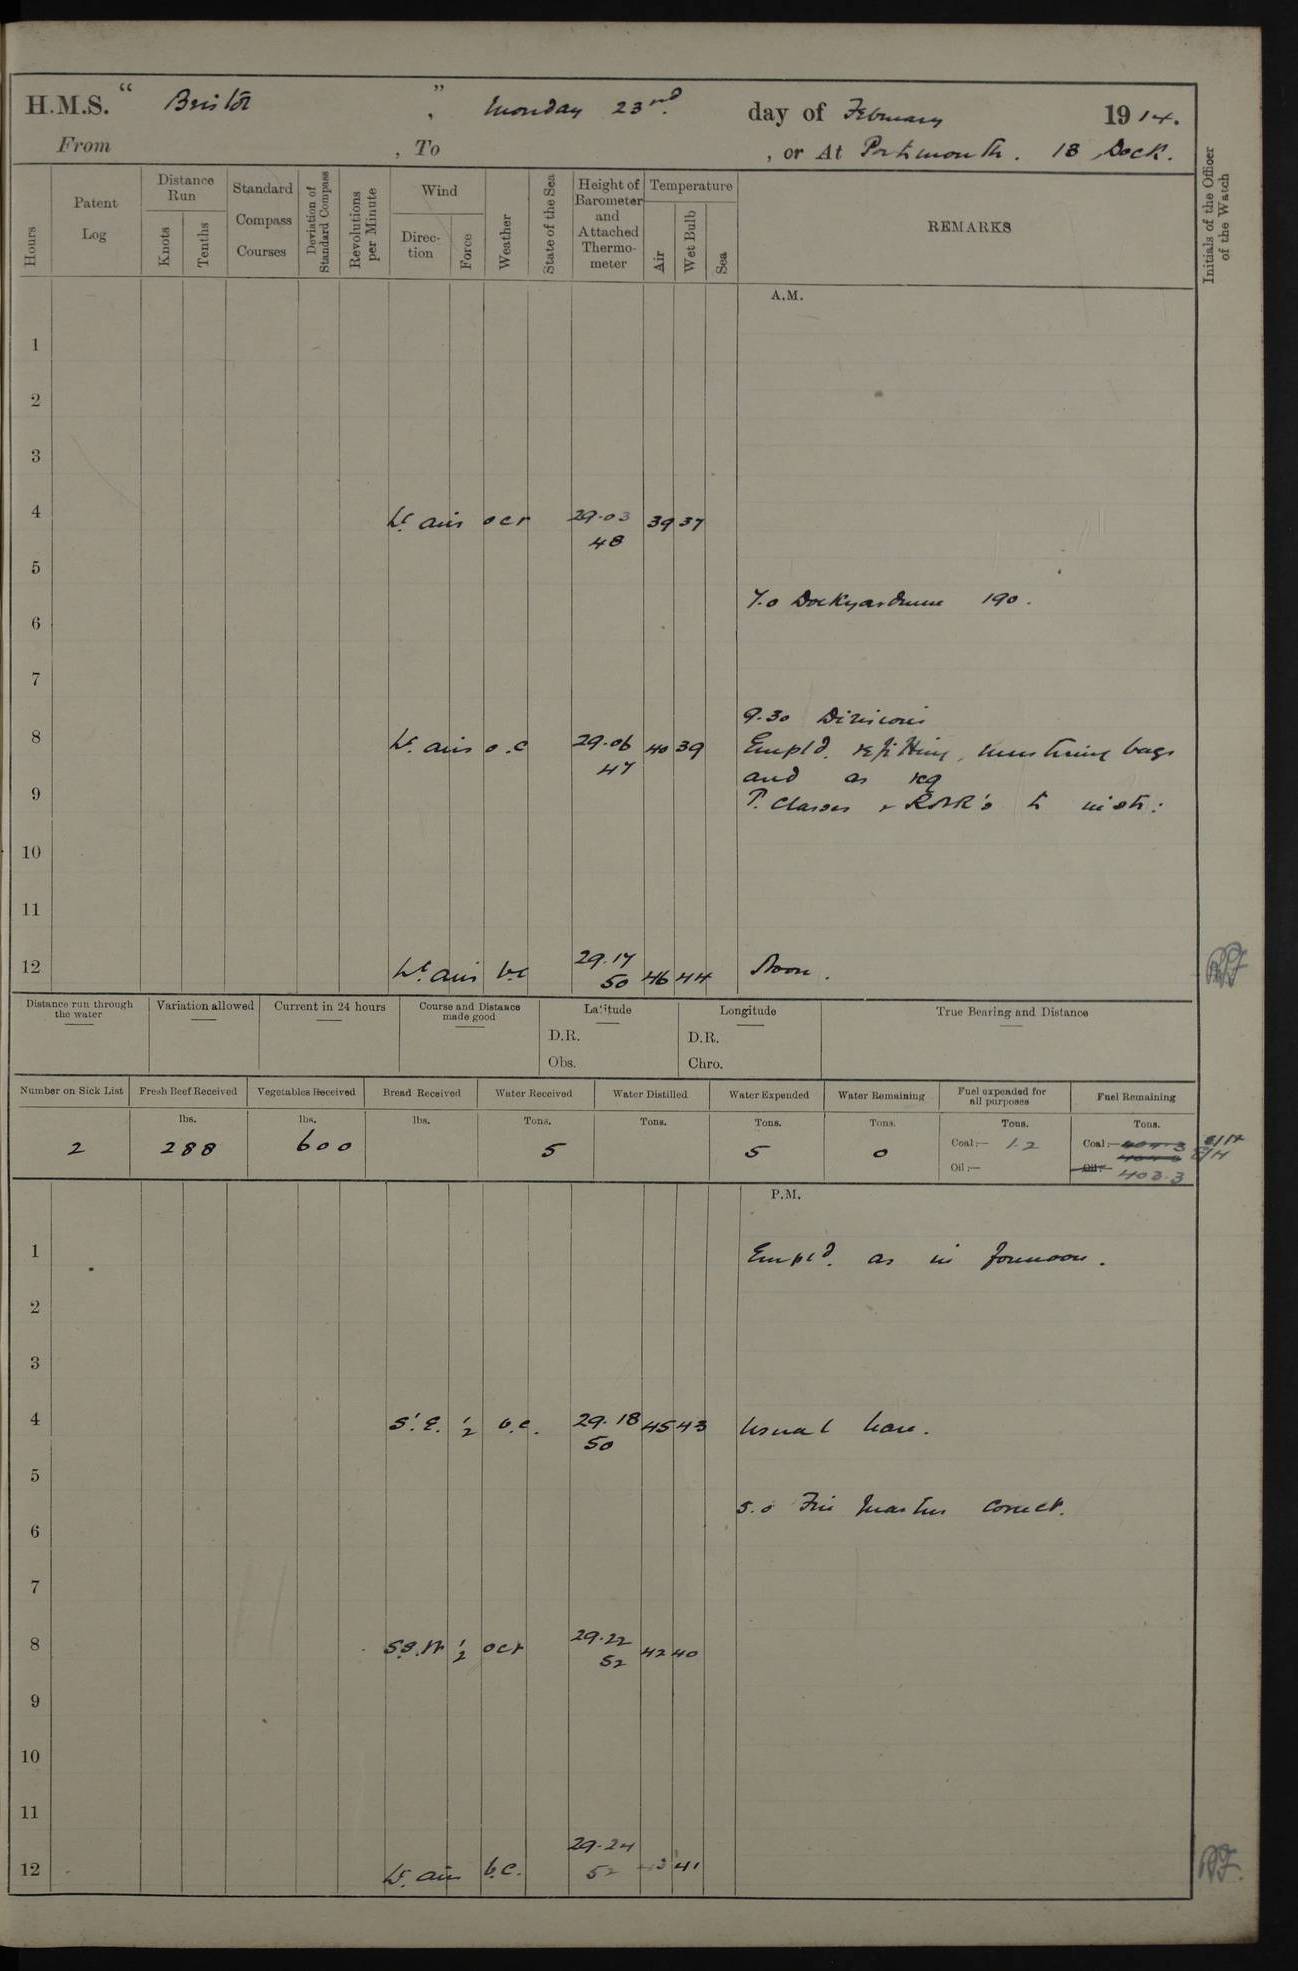 H.M.S. “ Bristol ”, Monday 23rd. day of February 1914.
From , To , or At Portsmouth. 13 Dock.
Hours
Patent Log
Distance Run
Knots
Tenths
Standard Compass Courses
Deviation of Standard Compass
Revolutions per Minute
Wind
Direction
Force
Weather
State of the Sea
Height of Barometer and Attached Thermometer
Temperature
Air
Wet Bulb
Sea
REMARKS
Initials of the Officer of the Watch
A.M.
1
2
3
4 Lt. airs ocr 29.03 39 37
48
5
7.0 Dockyardmen 190.
6
7
9.30 Divisions
8 Lt. airs o.c 29.06 40 39 Empld. refitting, mustering bags
47 and as req
9 P. Classes & RNR's to instr:
10
11
12 Lt. airs bc 29.17 46 44 Noon.
50
Distance run through the water
Variation allowed
Current in 24 hours
Course and Distance made good
Latitude
D.R.
Obs.
Longitude
D.R.
Chro.
True Bearing and Distance
Number on Sick List
Fresh Beef Received
Vegetables Received
Bread Received
Water Received
Water Distilled
Water Expended
Water Remaining
Fuel expended for all purposes
Fuel Remaining
lbs. lbs. lbs. Tons. Tons. Tons. Tons. Tons. Tons.
2 288 600 5 5 0 Coal:— 1.2 Coal:—
Oil:— Oil:— 403.3
P.M.
1 Empld. as in forenoon.
2
3
4 S'.E. 1/2 b.c. 29.18 45 43 Usual leave.
50
5
5.0 Fire Quarters correct.
6
7
8 S.S.W 1/2 ocr 29.22 42 40
52
9
10
11
12 Lt. air b.c. 29.24 43 41
52